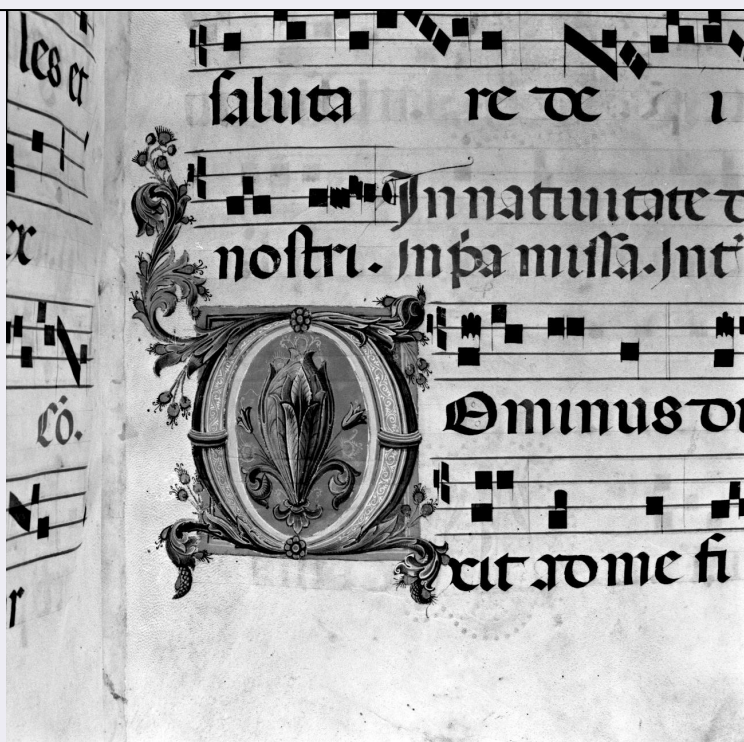 les et
ex
Cō.
r
saluta re de i
In natiuitate d
nostri. In pa missa. Int
Ominus di
xit ad me fi